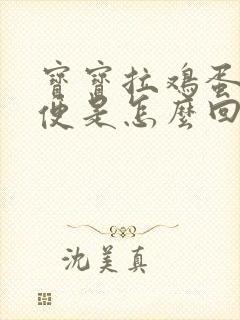 寶寶拉鴉蛋
便是怎麼回
沈美真